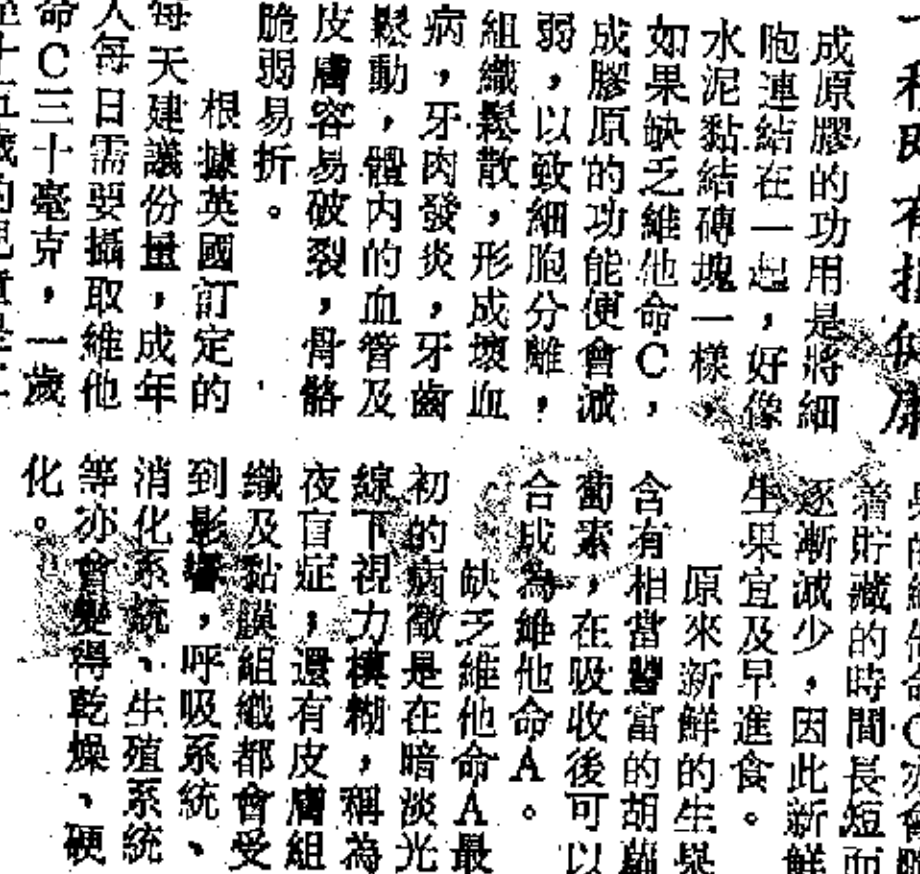 成原膠的功用是將細
胞連結在一起,好像
水泥黏結磚塊一樣,
如果缺乏維他命C,
成膠原的功能便會減
弱,以致細胞分離,
組織鬆散,形成壞血
病,牙肉發炎,牙齒
鬆動,體內的血管及
皮膚容易破裂,骨骼
脆弱易折。
根據英國訂定的
每天建議份量,成年
人每日需要攝取維他
命C三十毫克,一歲
至十五歲的兒童是
的維他命C亦會隨
着貯藏的時間長短而
逐漸減少,因此新鮮
生果宜及早進食。
原來新鮮的生果
含有相當豐富的胡蘿
蔔素,在吸收後可以
合成為維他命A。
缺乏維他命A最
初的病徵是在暗淡光
線下視力模糊,稱為
夜盲症;還有皮膚組
織及黏膜組織都會受
到影響,呼吸系統、
消化系統、生殖系統
等亦會變得乾燥、硬
化。